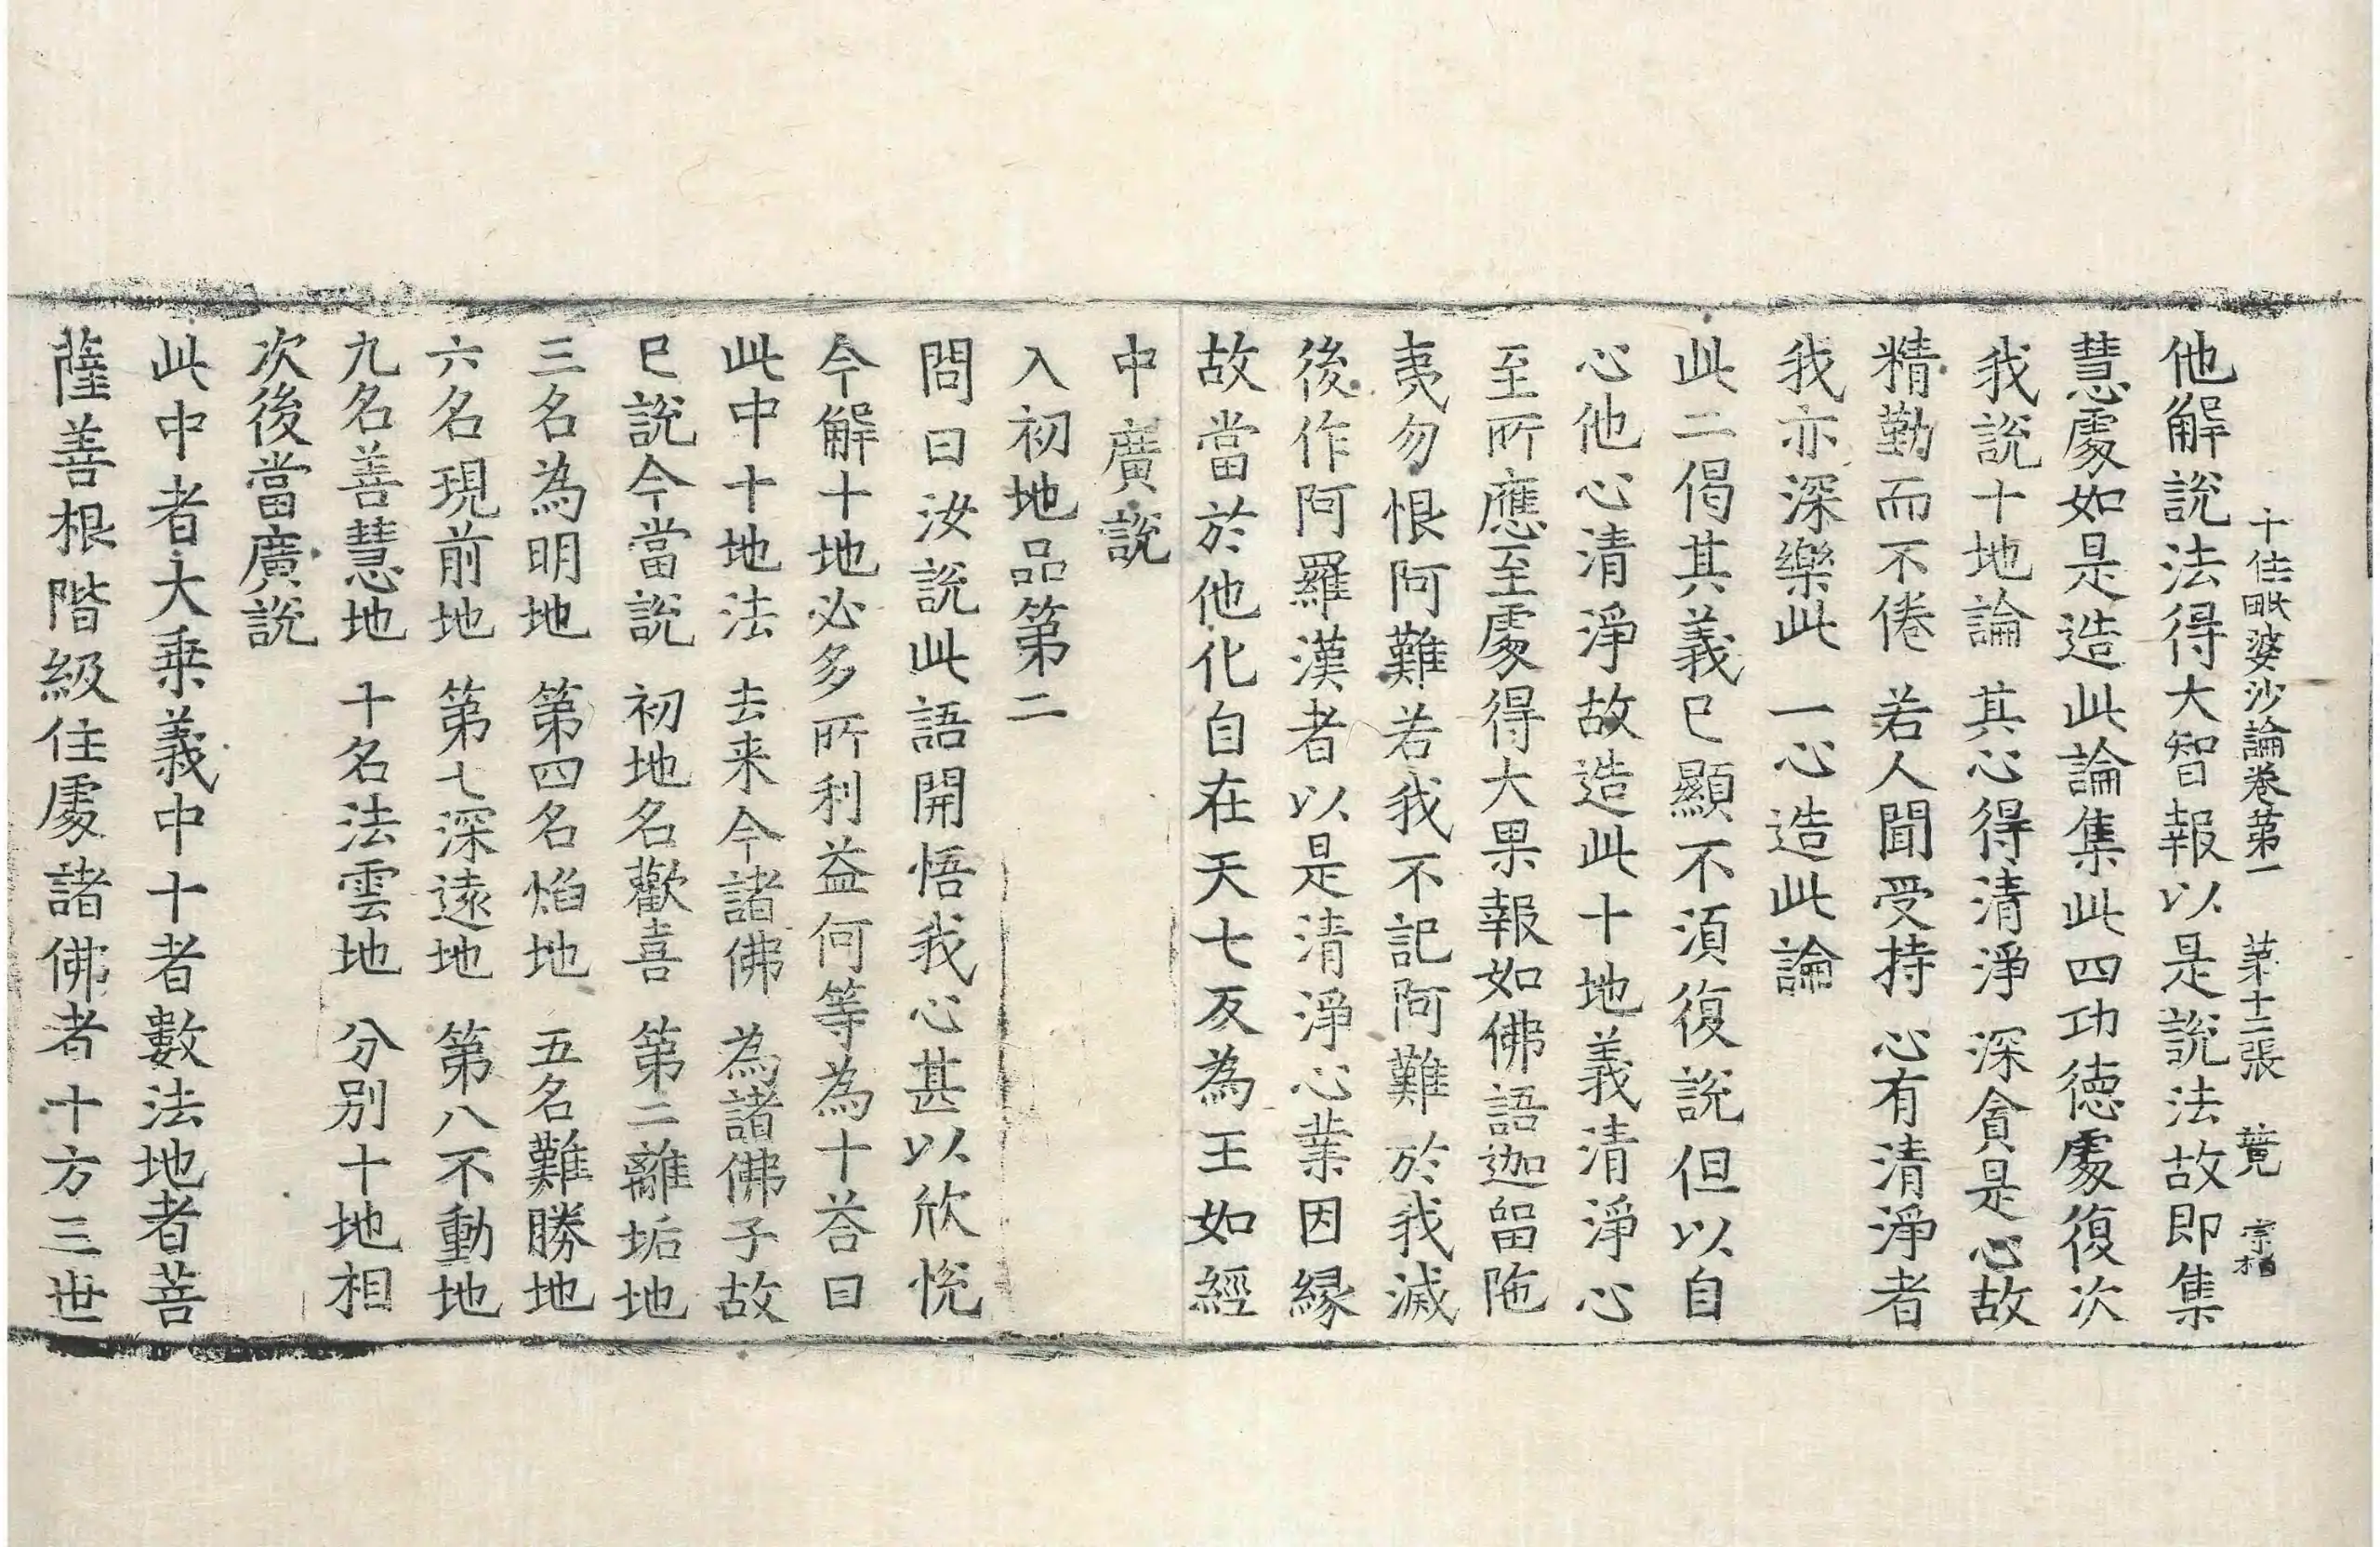 十住毗婆沙論卷第一 第十二張 覽 宗相
他解說法得大智報以是說法故即集
慧處如是造此論集此四功德處復次
我說十地論 其心得清淨 深貪是心故
精勤而不倦 若人聞受持 心有清淨者
我亦深樂此 一心造此論
此二偈其義已顯不須復說但以自
心他心清淨故造此十地義清淨心
至所應至處得大果報如佛語迦留陁
夷勿恨阿難若我不記阿難於我滅
後作阿羅漢者以是清淨心業因緣
故當於他化自在天七反為王如經
中廣說
入初地品第二
問曰汝說此語開悟我心甚以欣悅
今解十地必多所利益何等為十荅曰
此中十地法 去来今諸佛 為諸佛子故
已說今當說 初地名歡喜 第二離垢地
三名為明地 第四名焰地 五名難勝地
六名現前地 第七深遠地 第八不動地
九名善慧地 十名法雲地 分別十地相
次後當廣說
此中者大乗義中十者數法地者菩
薩善根階級住處諸佛者十方三世